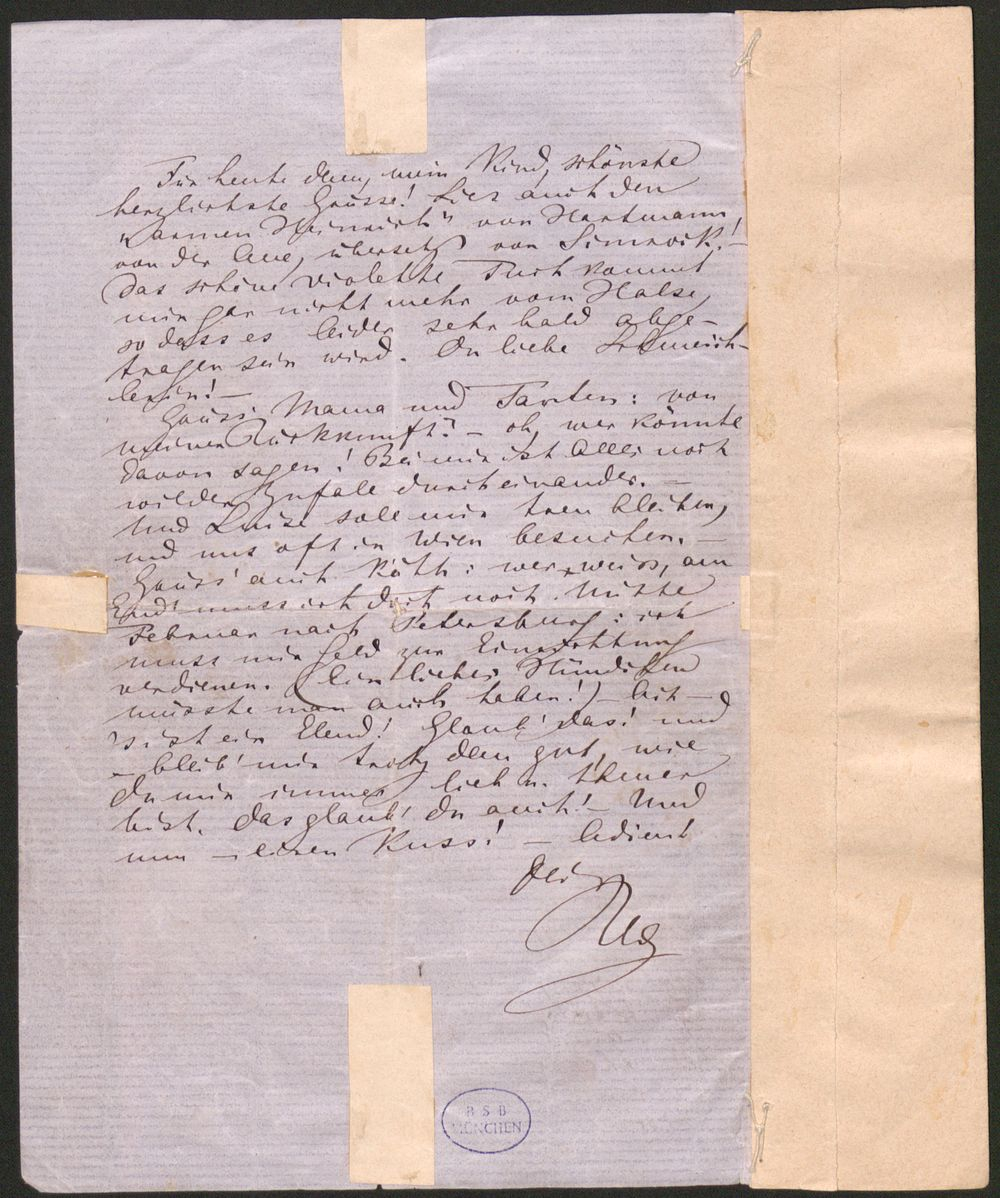 Für heute denn, mein Kind, schönste
herzlichste Grüsse! Lies auch den
„armen Heinrich" von Hartmann
von der Aue, übersetzt von Simrock! –
Das schöne violette Tuch kommt
mir gar nicht mehr vom Halse,
so dass es leider sehr bald abge-
tragen sein wird. Du liebe Schmeich-
lerin! –
Grüss' Mama und Tanten: von
meiner Zurkunft? – oh, wer könnte
davon sagen! Bei mir ist Alles noch
wilder Zufall durcheinander. –
Und Luise soll mir treu bleiben,
und uns oft in Wien besuchen. –
Grüss' auch Käth: wer weiss, am
End' muss ich doch noch Mitte
Februar nach Petersburg: ich
muss mir Geld zur Einrichtung
verdienen. (Ein liebes Hündchen
müsste man auch haben!) – Ach –
's ist ein Elend! Glaub' das! und
– bleib' mir trotz dem gut, wie
du mir immer lieb u. theuer
bist. Das glaub' du auch! – Und
nun – einen Kuss! – Adieu!
Dein
R W
B S B
MÜNCHEN